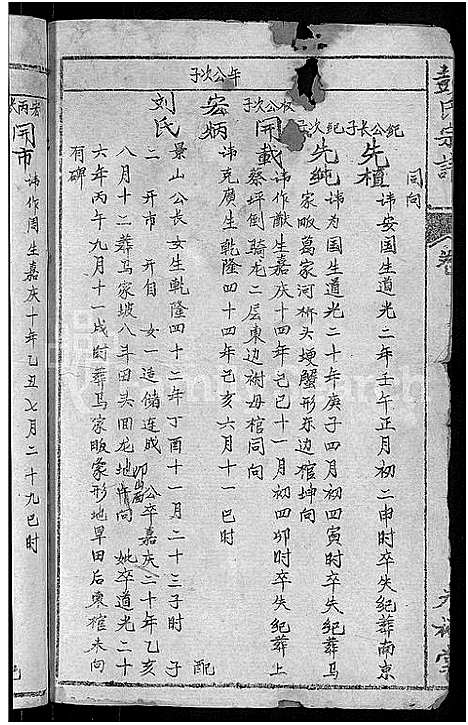 彭氏宗譜
卷
光裕堂
同向
紀公長子
先植
諱安国生道光二年壬午正月初二申时卒失紀葬南京
紀次子
先純
諱为国生道光二十年庚子四月初四寅时卒失紀葬马
家畈萬家河桥头埂蟹形东边棺坤向
权公次子
開載
諱作猷生嘉庆十四年己巳十一月初四卯时卒失紀葬上
蔡坪倒骑龙二层東边祔母棺同向
午公次子
宏炳
諱克廣生乾隆四十四年己亥六月十一巳时
配
刘氏
景山公長女生乾隆四十二年丁酉十一月二十三子时
子
二 开市 开自 女一造储連成 公卒嘉庆二十年乙亥
八月十二葬马家坡八斗田头回龙地 向 妣卒道光二十
六年丙午九月十一戌时葬马家畈象形地旱田后東棺未向
有碑
宏丙長
開市
諱作周生嘉庆十年乙丑七月二十九巳时
配